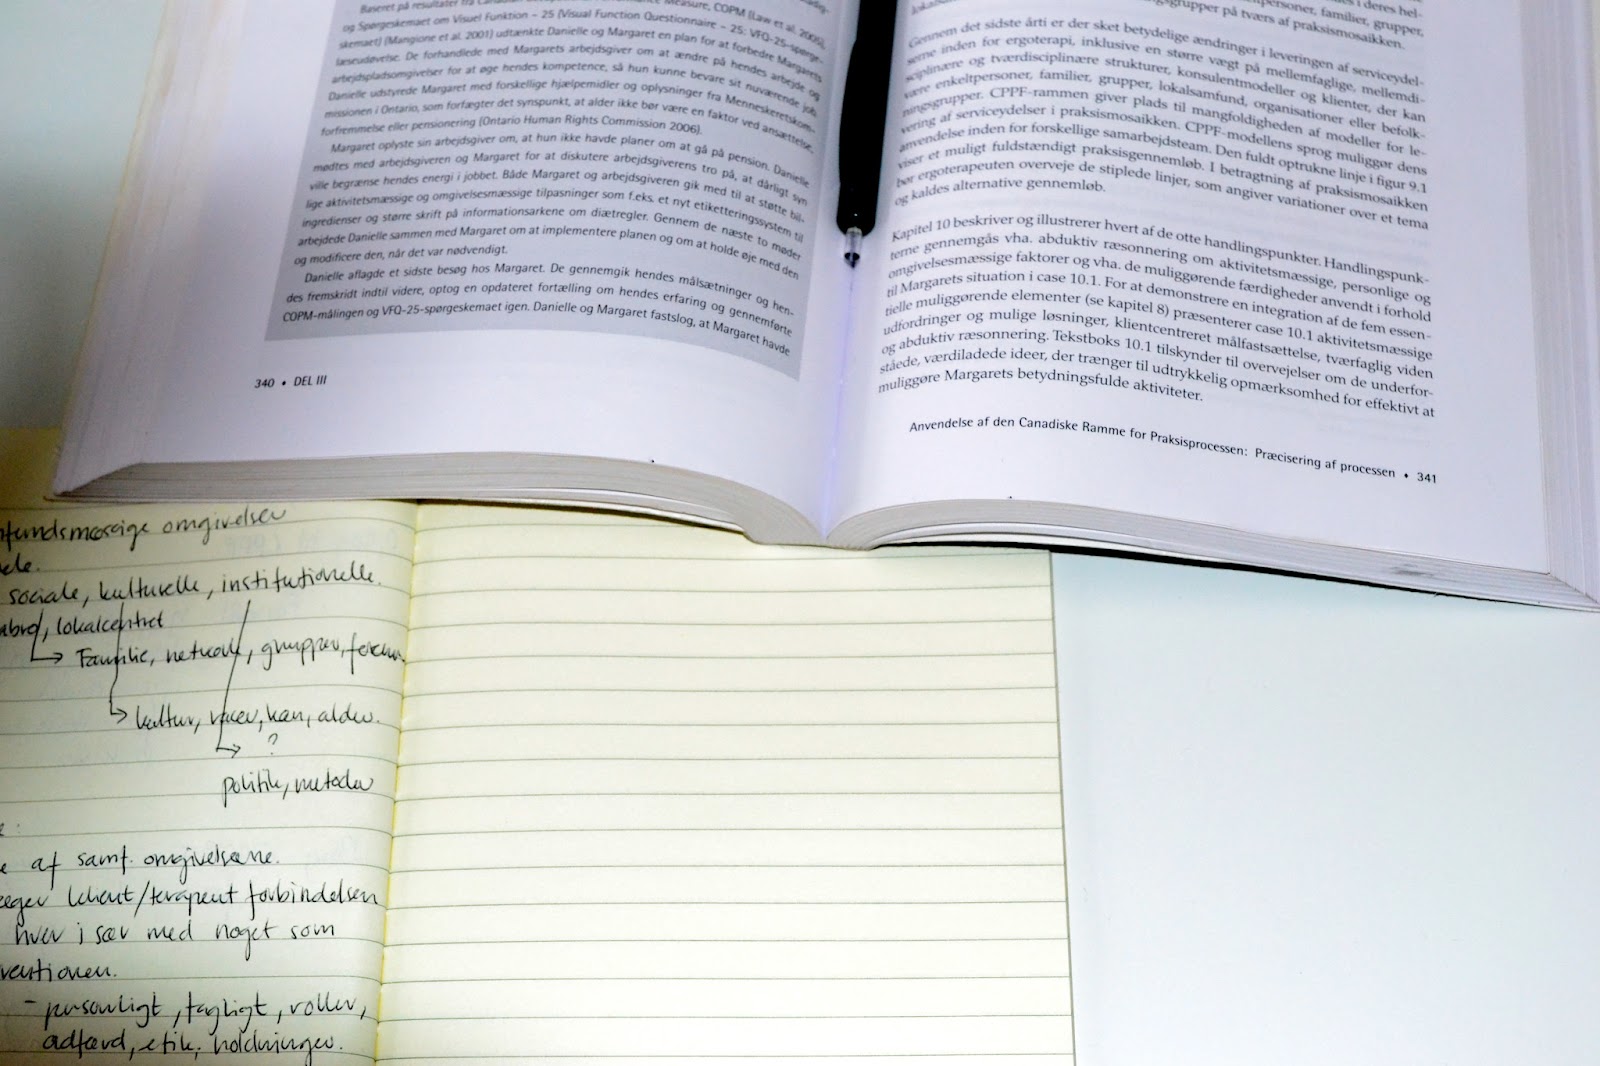 Baseret på resultater fra Measure, COPM (Law et al. 2005),
og Spørgeskemaet om Visuel Funktion – 25 (Visual Function Questionnaire – 25: VFQ-25-spørge-
skemaet) (Mangione et al. 2001) udtænkte Danielle og Margaret en plan for at forbedre Margarets
læseudøvelse. De forhandlede med Margarets arbejdsgiver om at ændre på hendes arbejde og
arbejdspladsomgivelser for at øge hendes kompetence, så hun kunne bevare sit nuværende job.
Danielle udstyrede Margaret med forskellige hjælpemidler og oplysninger fra Menneskeretskom-
missionen i Ontario, som forfægter det synspunkt, at alder ikke bør være en faktor ved ansættelse,
forfremmelse eller pensionering (Ontario Human Rights Commission 2006).
Margaret oplyste sin arbejdsgiver om, at hun ikke havde planer om at gå på pension. Danielle
mødtes med arbejdsgiveren og Margaret for at diskutere arbejdsgiverens tro på, at dårligt syn
ville begrænse hendes energi i jobbet. Både Margaret og arbejdsgiveren gik med til at støtte bil-
lige aktivitetsmæssige og omgivelsesmæssige tilpasninger som f.eks. et nyt etiketteringssystem til
ingredienser og større skrift på informationsarkene om diætregler. Gennem de næste to møder
arbejdede Danielle sammen med Margaret om at implementere planen og om at holde øje med den
og modificere den, når det var nødvendigt.
Danielle aflagde et sidste besøg hos Margaret. De gennemgik hendes målsætninger og hen-
des fremskridt indtil videre, optog en opdateret fortælling om hendes erfaring og gennemførte
COPM-målingen og VFQ-25-spørgeskemaet igen. Danielle og Margaret fastslog, at Margaret havde
340 • DEL III
i deres hel-
personer, familier, grupper,
grupper på tværs af praksismosaikken.
Gennem det sidste årti er der sket betydelige ændringer i leveringen af serviceydel-
serne inden for ergoterapi, inklusive en større vægt på mellemfaglige, mellemdi-
sciplinære og tværdisciplinære strukturer, konsulentmodeller og klienter, der kan
være enkeltpersoner, familier, grupper, lokalsamfund, organisationer eller befolk-
ningsgrupper. CPPF-rammen giver plads til mangfoldigheden af modeller for le-
vering af serviceydelser i praksismosaikken. CPPF-modellens sprog muliggør dens
anvendelse inden for forskellige samarbejdsteam. Den fuldt optrukne linje i figur 9.1
viser et muligt fuldstændigt praksisgennemløb. I betragtning af praksismosaikken
bør ergoterapeuten overveje de stiplede linjer, som angiver variationer over et tema
og kaldes alternative gennemløb.
Kapitel 10 beskriver og illustrerer hvert af de otte handlingspunkter. Handlingspunk-
terne gennemgås vha. abduktiv ræsonnering om aktivitetsmæssige, personlige og
omgivelsesmæssige faktorer og vha. de muliggørende færdigheder anvendt i forhold
til Margarets situation i case 10.1. For at demonstrere en integration af de fem essen-
tielle muliggørende elementer (se kapitel 8) præsenterer case 10.1 aktivitetsmæssige
udfordringer og mulige løsninger, klientcentreret målfastsættelse, tværfaglig viden
og abduktiv ræsonnering. Tekstboks 10.1 tilskynder til overvejelser om de underfor-
ståede, værdiladede ideer, der trænger til udtrykkelig opmærksomhed for effektivt at
muliggøre Margarets betydningsfulde aktiviteter.
Anvendelse af den Canadiske Ramme for Praksisprocessen: Præcisering af processen • 341
fundsmæssige omgivelser
sociale, kulturelle, institutionelle.
lokalcentret
Familie, netværk, grupper,
kultur, racer, køn, alder.
?
politik, metoder
:
af samf. omgivelserne.
klient/terapeut forbindelsen
hver i sær med noget som
ventionen.
- personligt, fagligt, roller,
adfærd, etik, holdninger.